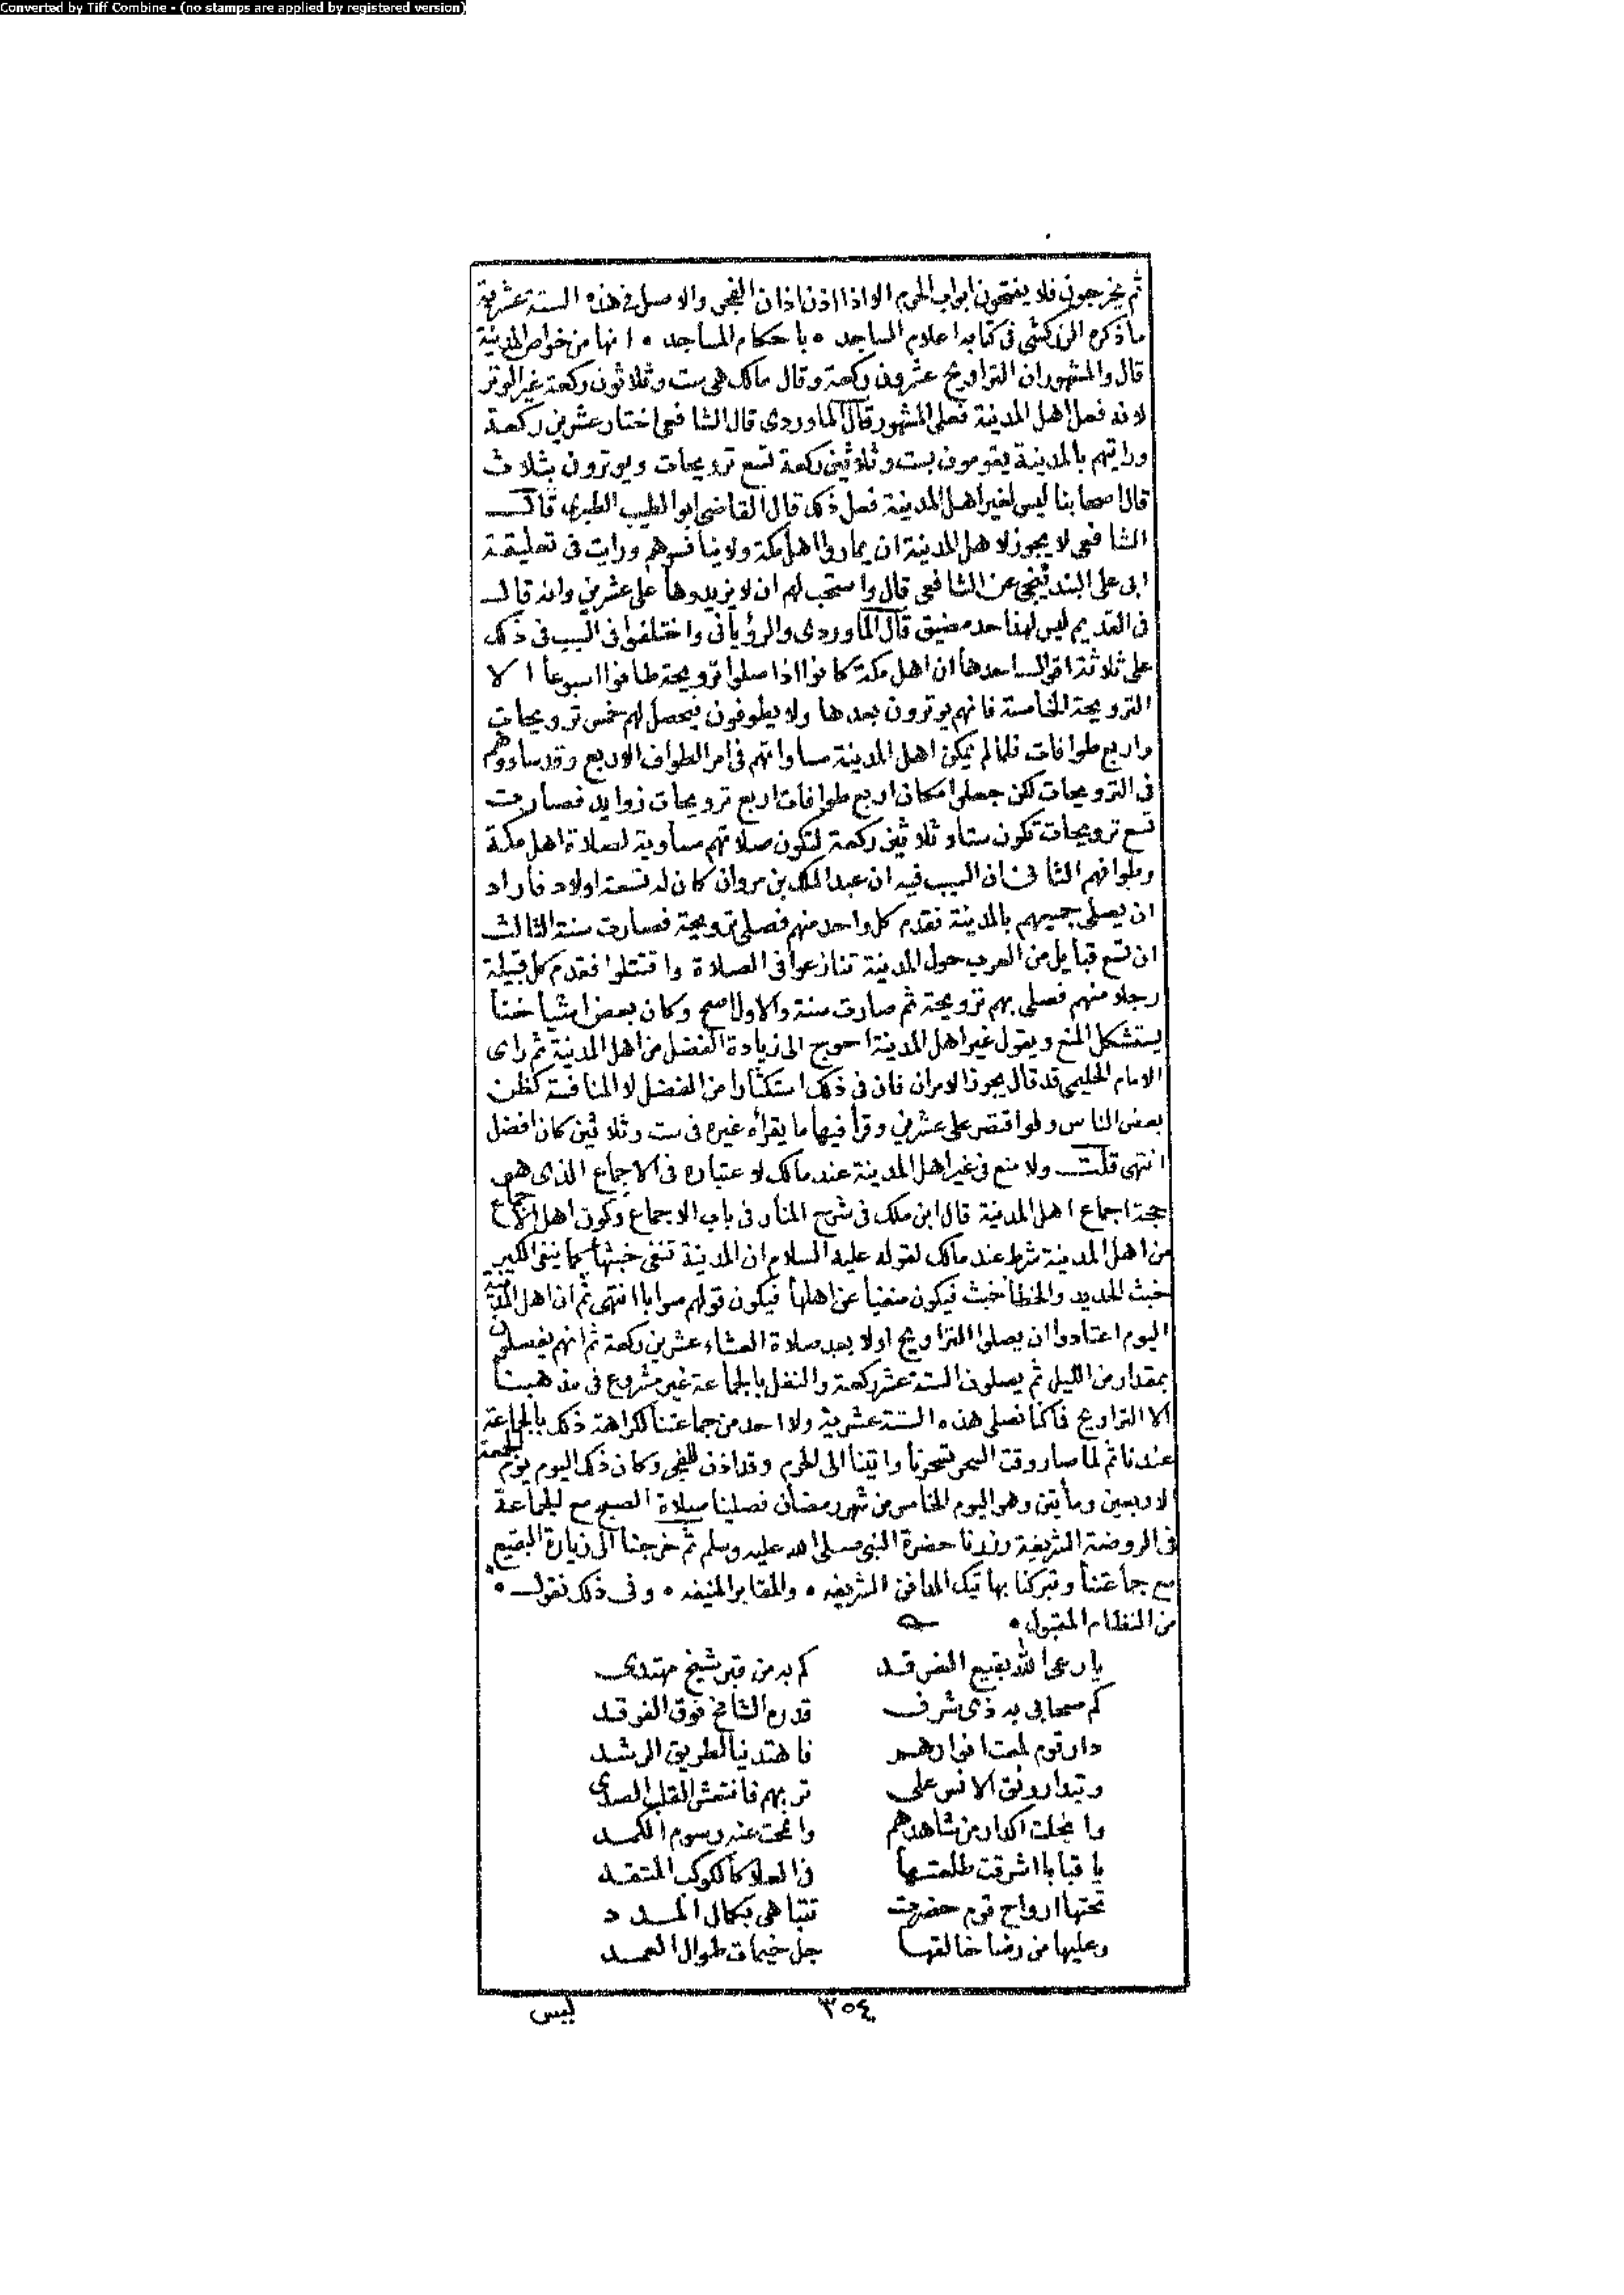 Converted by Tiff Combine - (no stamps are applied by registered version)
ثم يخرجون فلا يفتحون ابواب الحرم الا اذا اذن اذان الفجر والاصل فى هذه الستة عشرية
ما ذكره الزركشى فى كتابه اعلام الساجد • باحكام المساجد • انها من خواص المدينة
قال والمشهوران التراويح عشرون ركعة وقال مالك هى ست وثلاثون ركعة غير الوتر
لانه فعل اهل المدينة فعلى المشهور قال الماوردى قال الشافعى اختار عشرين ركعة
ورايتهم بالمدينة يقومون بست وثلاثين ركعة تسع ترويحات ويوترون بثلاث
قال اصحابنا ليس لغير اهل المدينة فعل ذلك قال القاضى ابو الطيب الطبرى قال
الشافعى لا يجوز لاهل المدينة ان يماروا اهل مكة ولا ينافسوهم ورايت فى تعليقة
ابى على البندنيجى عن الشافعى قال واستحب لهم ان لا يزيدوها على عشرين وانه قال
فى القديم ليس لهذا حد مضيق قال الماوردى والرؤيانى واختلفوا فى السبب فى ذلك
على ثلاثة اقوال احدها ان اهل مكة كانوا اذا صلوا ترويحة طافوا اسبوعا الا
الترويحة الخامسة فانهم يوترون بعدها ولا يطوفون فيحصل لهم خمس ترويحات
واربع طوافات فلما لم يمكن اهل المدينة مساواتهم فى امر الطواف الاربع وقد ساووهم
فى الترويحات لكن جعلوا مكان اربع طوافات اربع ترويحات زوايد فصارت
تسع ترويحات تكون ستا وثلاثين ركعة لتكون صلاتهم مساوية لصلاة اهل مكة
وطوافهم الثانى ان السبب فيه ان عبد الملك بن مروان كان له تسعة اولاد فاراد
ان يصلى جميعهم بالمدينة فقدم كل واحد منهم فصلى ترويحة فصارت سنة الثالث
ان تسع قبايل من العرب حول المدينة تنازعوا فى الصلاة واقتتلوا فقدم كل قبيلة
رجلا منهم فصلى بهم ترويحة ثم صارت سنة والاول اصح وكان بعض اشياخنا
يستشكل المنع ويقول غير اهل المدينة احوج الى زيادة الفضل من اهل المدينة ثم راى
الامام الحليمى قد قال يجوز الامران فان فى ذلك استكثارا من الفضل لا المنافسة كظن
بعض الناس ولو اقتصر على عشرين وقرأ فيها ما يقرأه غيره فى ست وثلاثين كان افضل
انتهى قلت ولا منع فى غير اهل المدينة عند مالك لاعتباره فى الاجماع الذى هو
حجة اجماع اهل المدينة قال ابن ملك فى شرح المنار فى باب الاجماع وكون اهل الاجماع
من اهل المدينة شرط عند مالك لقوله عليه السلام ان المدينة تنفى خبثها كما ينفى الكير
خبث الحديد والخطأ خبث فيكون منفيا عن اهلها فيكون قولهم صوابا انتهى ثم ان اهل المدينة
اليوم اعتادوا ان يصلوا التراويح اولا بعد صلاة العشاء عشرين ركعة ثم انهم يفصلون
بمقدار من الليل ثم يصلون الستة عشر ركعة والنفل بالجماعة غير مشروع فى مذهبنا
الا التراويح فما كنا نصلى هذه الستة عشرية ولا احد من جماعتنا لكراهة ذلك بالجماعة
عندنا ثم لما صار وقت السحر تسحرنا واتينا الى الحرم وقد اذن للفجر وكان ذلك اليوم يوم الجمعة
الاربعين ومأتين وهو اليوم الخامس من شهر رمضان فصلينا صلاة الصبح مع الجماعة
فى الروضة الشريفة وزرنا حضرة النبى صلى الله عليه وسلم ثم خرجنا الى زيارة البقيع
مع جماعتنا وتبركنا بهاتيك المدافن الشريفه • والمقابر المنيفه • وفى ذلك نقول •
من النظام المقبول •
يا رعى الله بقيع الغرقد كم به من قبر شيخ مهتدى
كم صحابى به ذى شرف قدره الشامخ فوق الفرقد
دار قوم لمعت انوارهم فاهتدينا لطريق الرشد
وتبدا رونق الانس على تربهم فانتعش القلب الصدى
وانجلت اكدار من شاهدهم وانمحت عنه رسوم الكمد
يا قبابا اشرقت طلعتها فى العلا كالكوكب المتقد
تحتها ارواح قوم حضرت تتباهى بكمال المدد
وعليها من رضا خالقها جل خيمات طوال العمد
٣٥٤
ليس